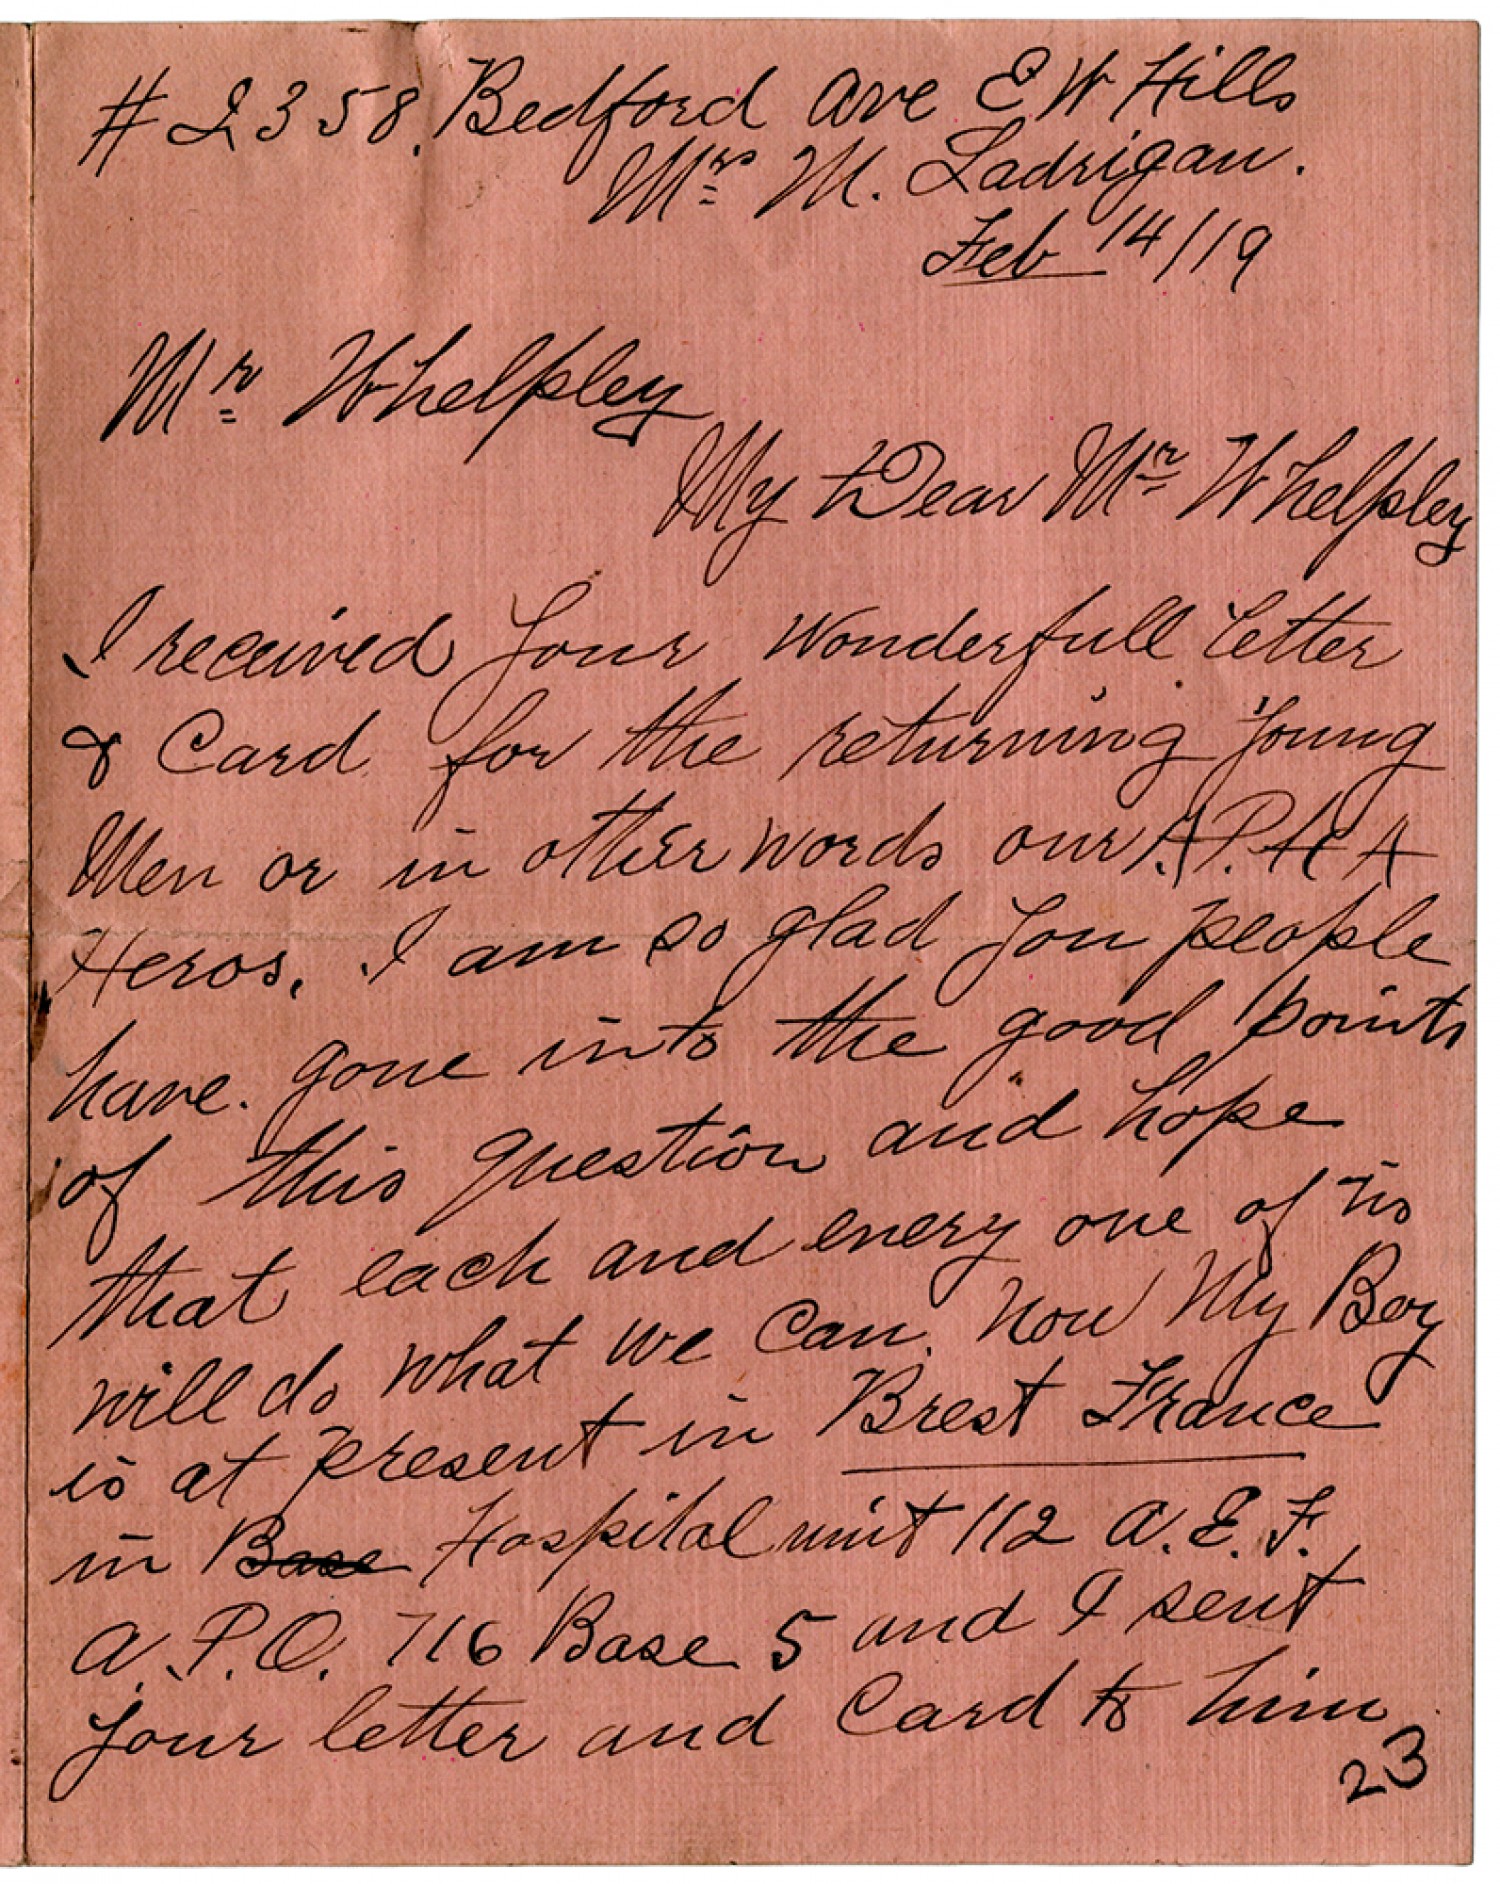 # 2358. Bedford Ave E W Hills
Mrs M. Ladrigan.
Feb 14/19
Mr Whelpley
My Dear Mr Whelpley
I received your wonderfull letter
& Card for the returning young
Men or in other words our
Heros. I am so glad you people
have. gone into the good points
of this question and hope
that each and every one of us
will do what we can. now My Boy
is at present in Brest France
in Base Hospital unit 112 A. E. F.
A. P. O. 716 Base 5 and I sent
your letter and Card to him
23